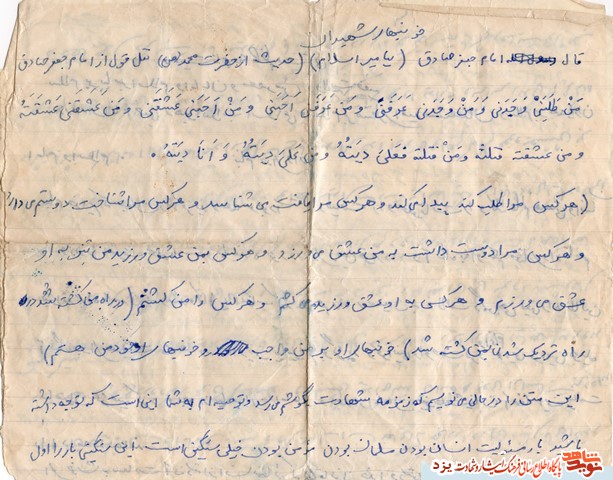 خونبهای شهیدان
قال امام جعفر صادق (پیامبر اسلام) (حدیث از حضرت محمد) نقل قول از امام جعفر صادق
مَنْ طَلَبَنی وَجَدَنی وَ مَنْ وَجَدَنی عَرَفَنی وَ مَنْ عَرَفَنی اَحَبَّنی وَ مَنْ اَحَبَّنی عَشَقَنی وَ مَنْ عَشَقَنی عَشَقْتَهُ
و من عشقته قتلته وَ مَنْ قتلته فَعَلَیَّ دیَتَهُ وَ مَنْ عَلَیَّ دیَتَهُ وَ اَنَا دیَتَهُ .
(هر کس مرا طلب کند پیدا می کند و هر کس مرا یافت می شناسد و هر کس مرا شناخت دوستم می دارد
و هر کس مرا دوست داشت به من عشق می ورزد و هر کس بمن عشق ورزید من نیز به او
عشق می ورزم و هر کس به او عشق ورزیدم می کشم و هر کس را من کشتم (در راه من کشته شد در
راه نزدیک شدن بمن کشته شد) خونبهای او بر من واجب و خونبهای او خود من هستم)
این متن را در حالی می نویسم که زمزمه شهادت بگوشم می رسد و توصیه ام به شما اینی است که توجه داشته
باشید بار مسئولیت انسان بودن مسلمان بودن مؤمن بودن خیلی سنگین است این سنگینی بار را اول
نوید شاهد
پایگاه اطلاع رسانی فرهنگ ایثار و شهادت یزد